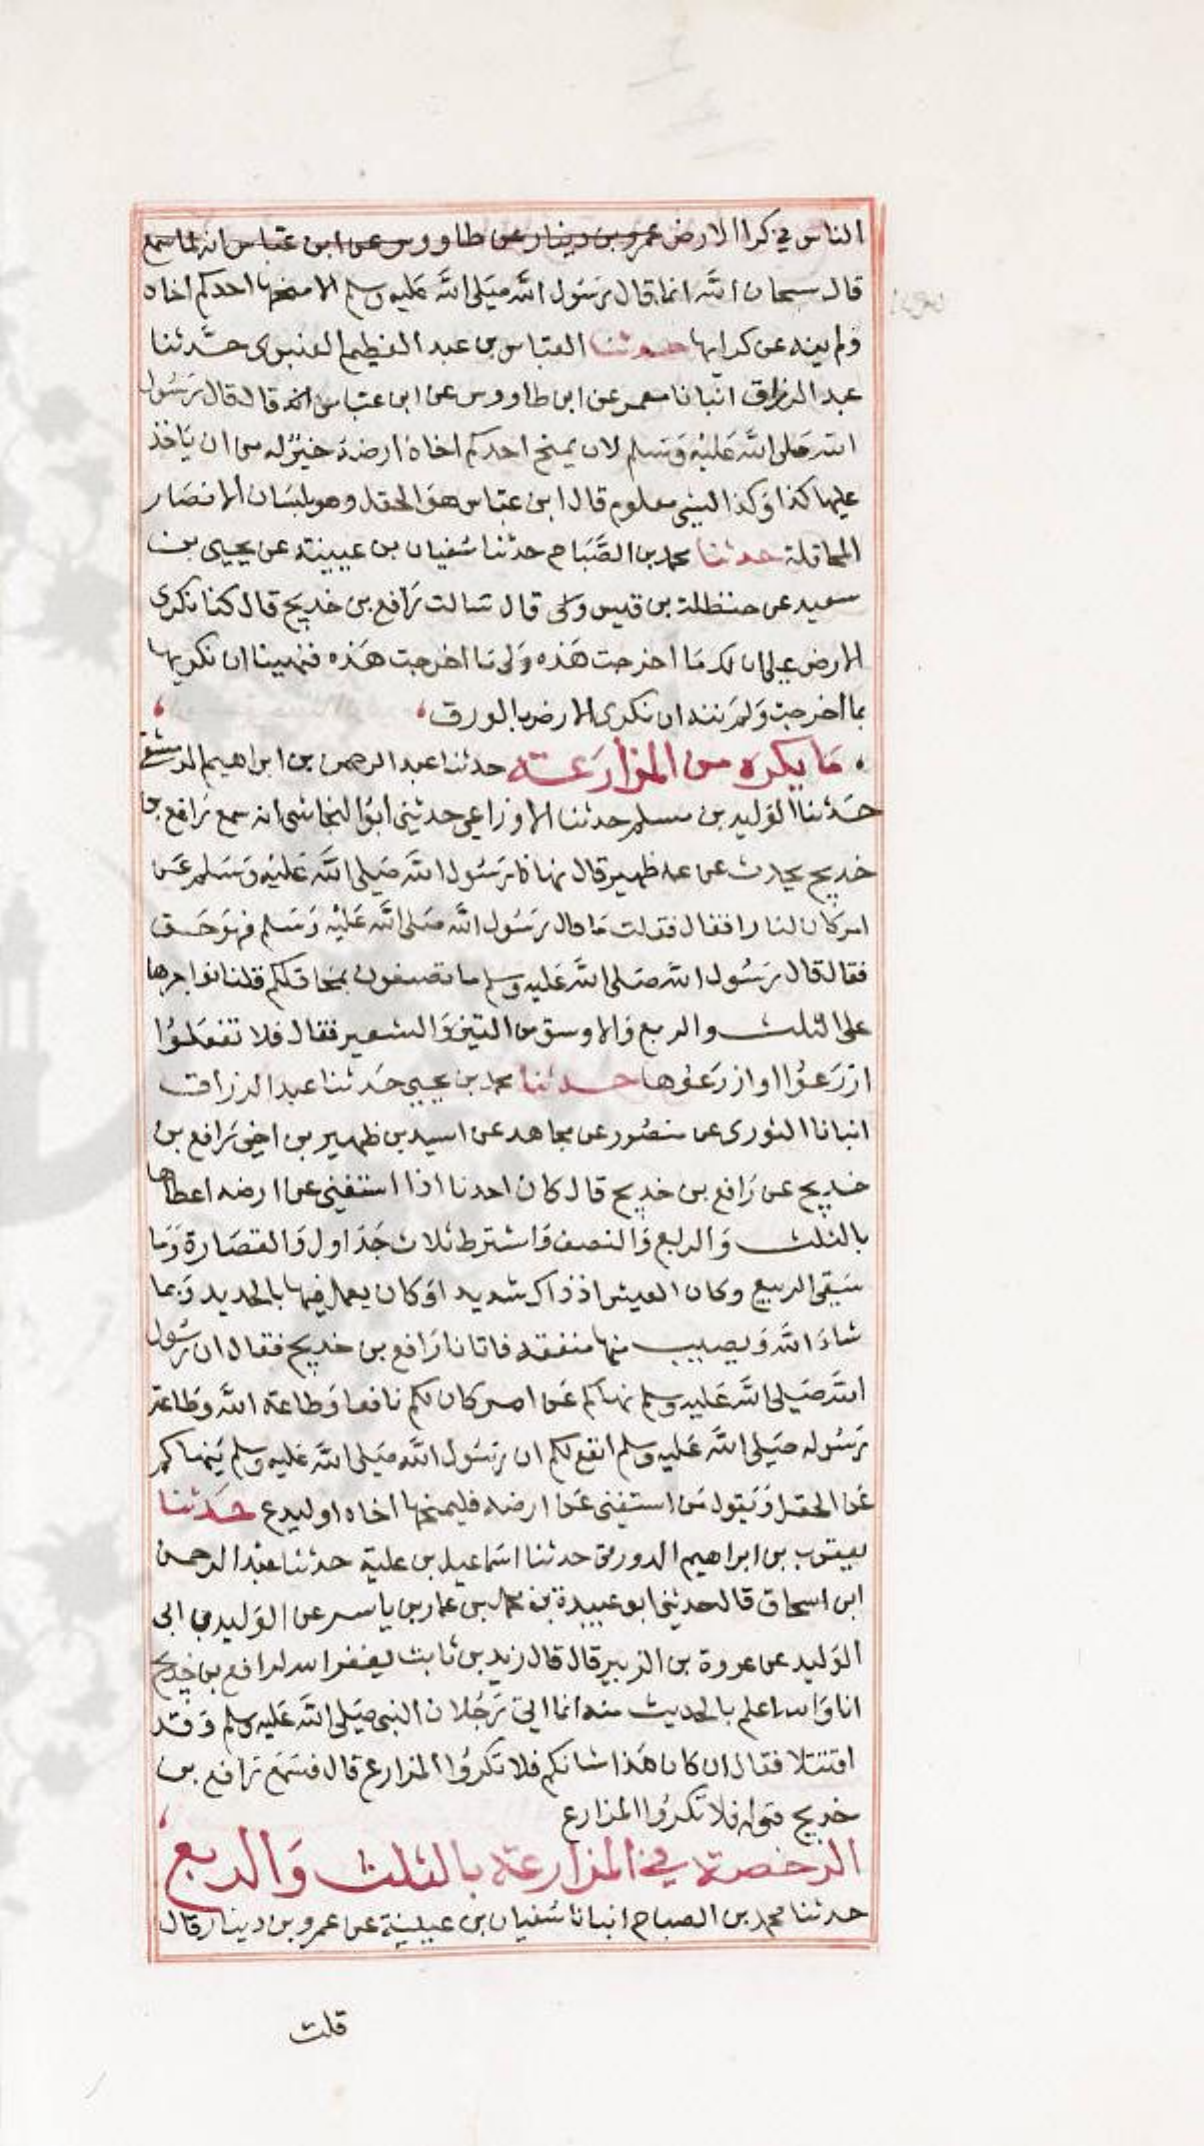 الناس في كرا الارض عمرو بن دينار عن طاووس عن ابن عباس انه لما سمع
قال سبحان الله انما قال رسول الله صلى الله عليه وسلم الا منحها احدكم اخاه
ولم ينه عن كرايها حدثنا العباس بن عبد العظيم العنبرى حدثنا
عبد الرزاق انبانا معمر عن ابن طاووس عن ابن عباس انه قال قال رسول
الله صلى الله عليه وسلم لان يمنح احدكم اخاه ارضه خير له من ان ياخذ
عليها كذا وكذا لشى معلوم قال ابن عباس هو الحقل وهو بلسان الانصار
المحاقلة حدثنا محمد بن الصباح حدثنا سفيان بن عيينة عن يحيى بن
سعيد عن حنظلة بن قيس وكى قال سالت رافع بن خديج قال كنا نكرى
الارض على ان لك ما اخرجت هذه ولى ما اخرجت هذه فنهينا ان نكريها
بما اخرجت ولم ننه ان نكرى الارض بالورق
ما يكره من المزارعة حدثنا عبد الرحمن بن ابراهيم الدمشقى
حدثنا الوليد بن مسلم حدثنا الاوزاعى حدثنى ابو النجاشى انه سمع رافع بن
خديج يحدث عن عمه ظهير قال نهانا رسول الله صلى الله عليه وسلم عن
امر كان لنا رافقا فقلت ما قال رسول الله صلى الله عليه وسلم فهو حق
فقال قال رسول الله صلى الله عليه وسلم ما تصنعون بمحاقلكم قلنا نواجرها
على الثلث والربع والاوسق من التبن والشعير فقال فلا تفعلوا
ازرعوا او ازرعوها حدثنا محمد بن يحيى حدثنا عبد الرزاق
انبانا الثورى عن منصور عن مجاهد عن اسيد بن ظهير بن اخى رافع بن
خديج عن رافع بن خديج قال كان احدنا اذا استغنى عن ارضه اعطاها
بالثلث والربع والنصف واشترط ثلاث جداول والقصارة وما
سقى الربيع وكان العيش اذ ذاك شديد او كان يعمل فيها بالحديد وبما
شاء الله ويصيب منها منفعة فاتانا رافع بن خديج فقال ان رسول
الله صلى الله عليه وسلم نهاكم عن امر كان لكم نافعا وطاعة الله وطاعة
رسوله صلى الله عليه وسلم انفع لكم ان رسول الله صلى الله عليه وسلم ينهاكم
عن الحقل ويقول من استغنى عن ارضه فليمنحها اخاه او ليدع حدثنا
يعقوب بن ابراهيم الدورقى حدثنا اسماعيل بن علية حدثنا عبد الرحمن
ابن اسحاق قال حدثنى ابو عبيدة بن محمد بن عمار بن ياسر عن الوليد بن ابى
الوليد عن عروة بن الزبير قال قال زيد بن ثابت يغفر الله لرافع بن خديج
انا والله اعلم بالحديث منه انما اتى رجلان النبى صلى الله عليه وسلم وقد
اقتتلا فقال ان كان هذا شانكم فلا تكروا المزارع قال فسمع رافع بن
خديج قوله فلا تكروا المزارع
الرخصة في المزارعة بالثلث والربع
حدثنا محمد بن الصباح انبانا سفيان بن عيينة عن عمرو بن دينار قال
قلت